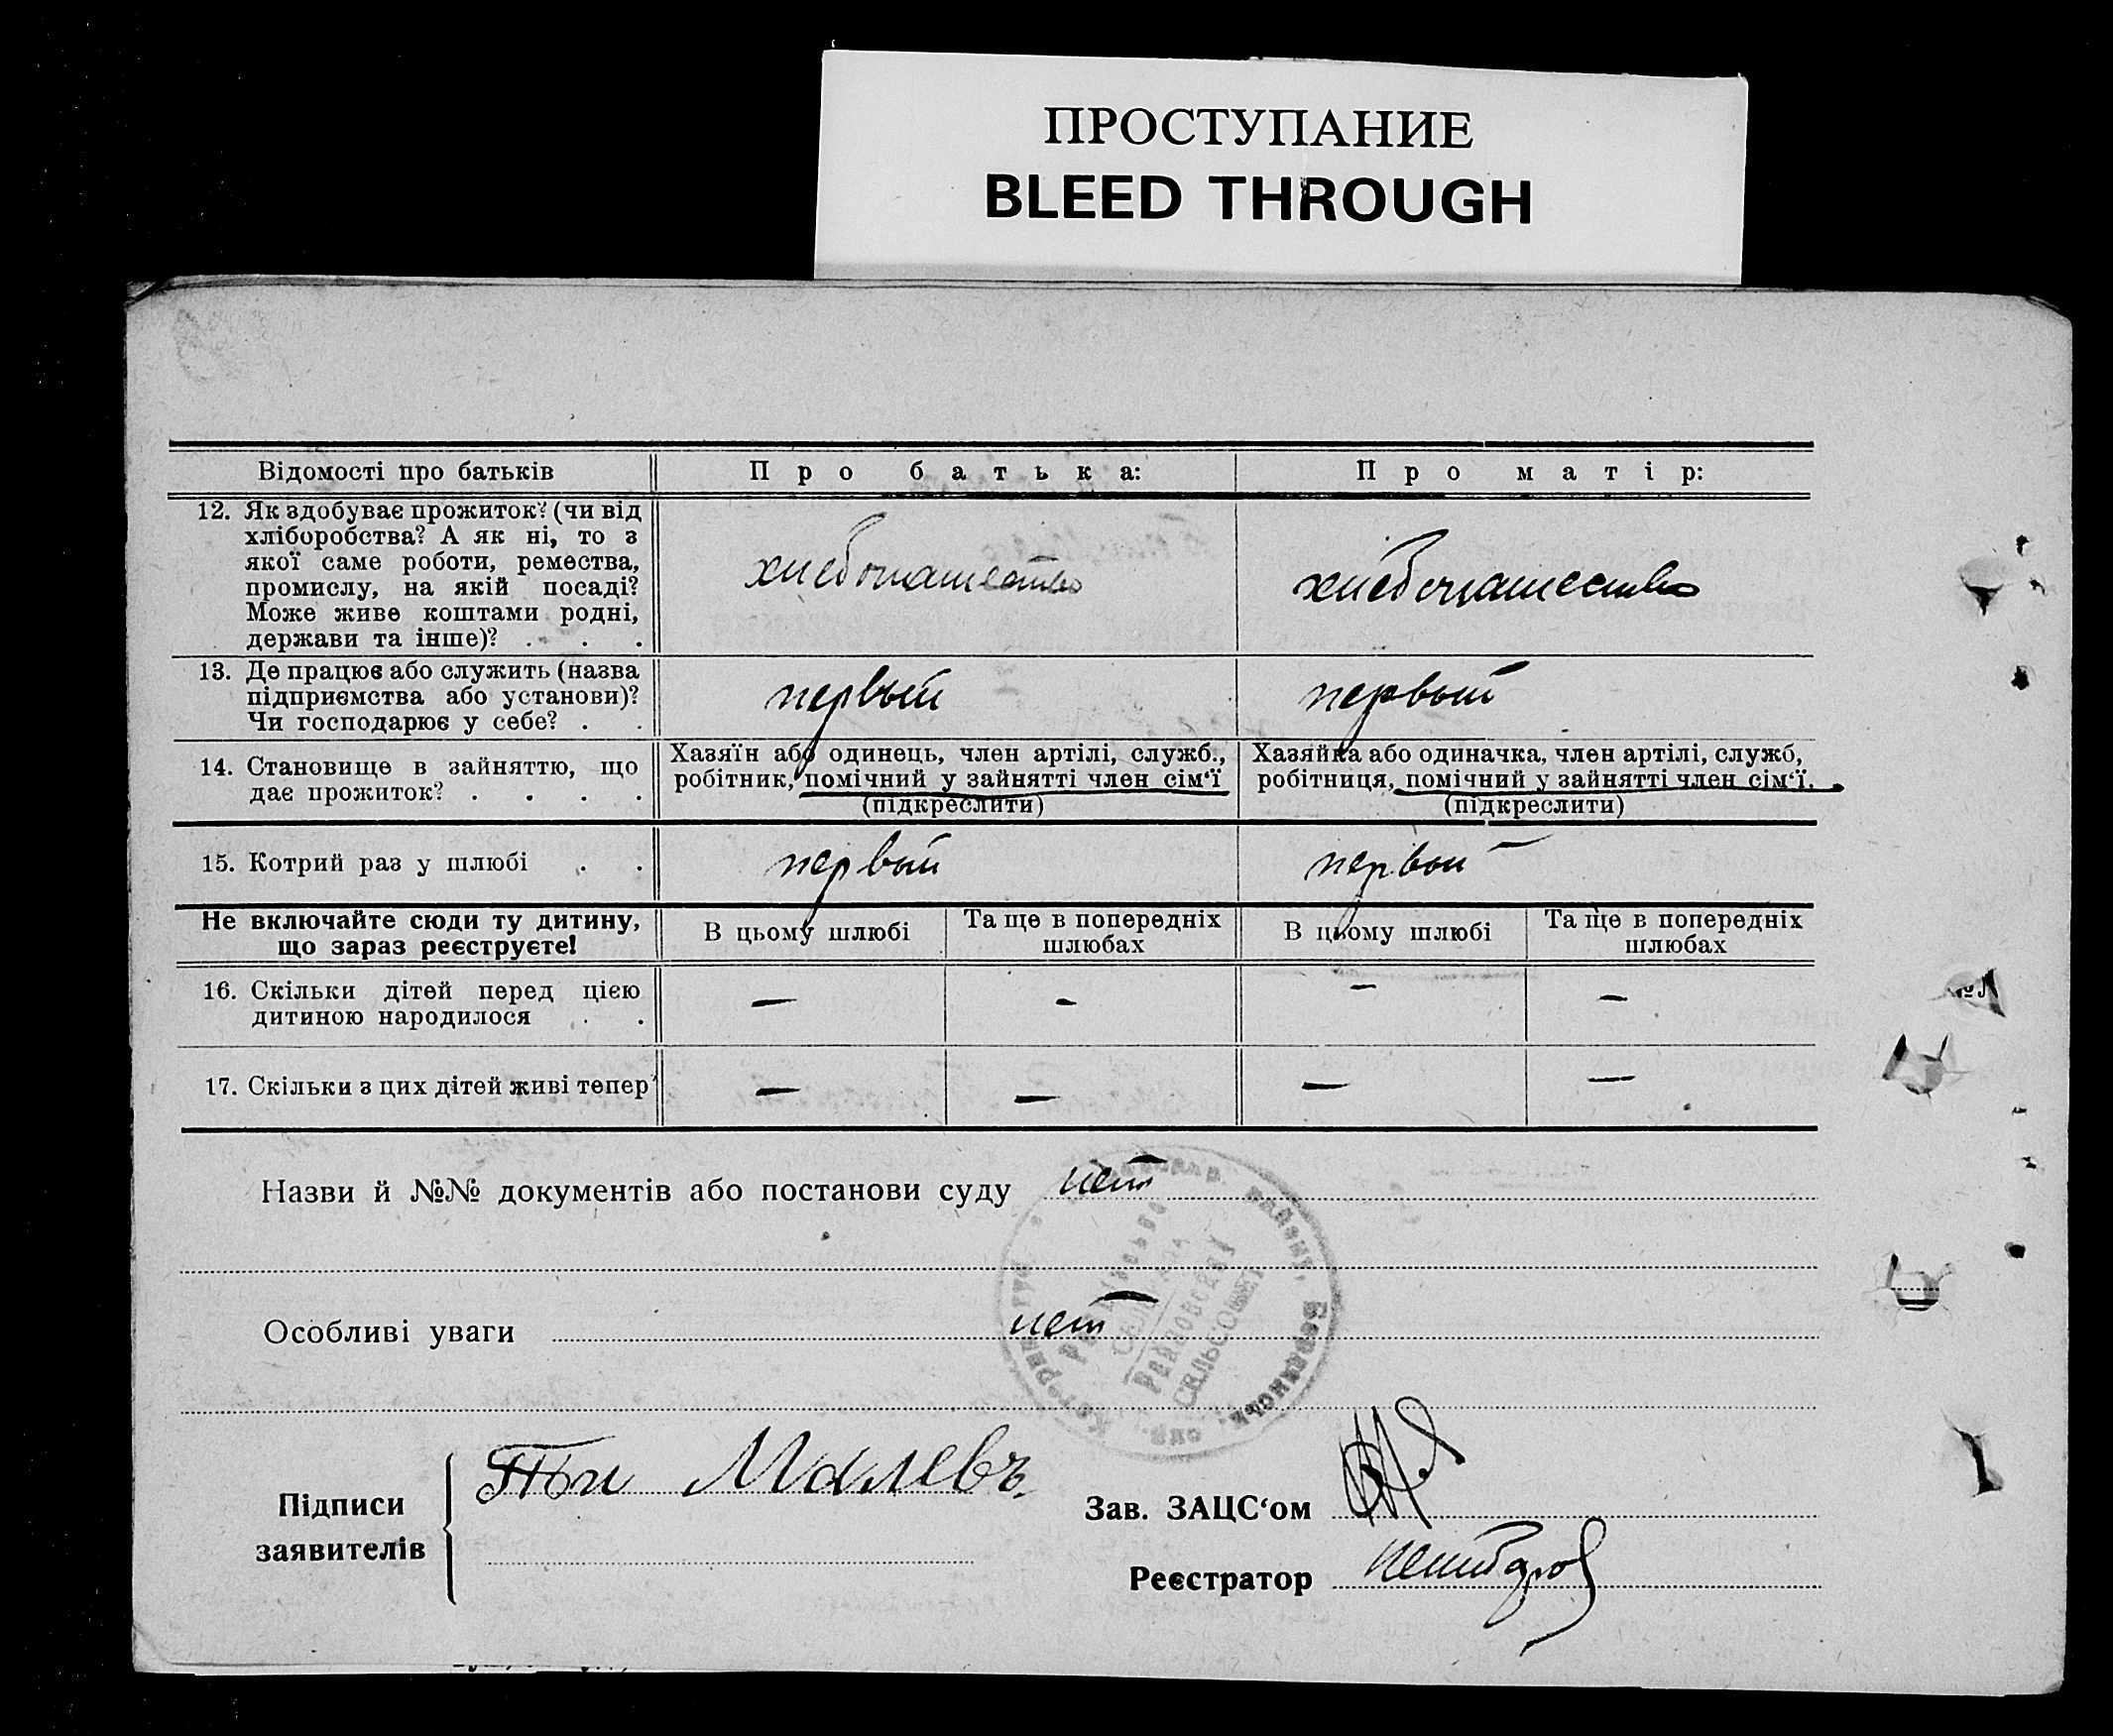 ПРОСТУПАНИЕ
BLEED THROUGH
Відомості про батьків
Про батька:
Про матір:
12. Як здобуває прожиток? (чи від
хліборобства? А як ні, то з
якої саме роботи, ремества,
промислу, на якій посаді?
Може живе коштами родні,
держави та інше)? . . .
хлебопашество
хлебопашество
13. Де працює або служить (назва
підприємства або установи)?
Чи господарює у себе? . .
первый
первый
14. Становище в зайняттю, що
дає прожиток? . . . .
Хазяїн або одинець, член артілі, служб.,
робітник, помічний у зайнятті член сім'ї
(підкреслити)
Хазяйка або одиначка, член артілі, служб,
робітниця, помічний у зайнятті член сім'ї.
(підкреслити)
15. Котрий раз у шлюбі . .
первый
первый
Не включайте сюди ту дитину,
що зараз реєструєте!
В цьому шлюбі
Та ще в попередніх
шлюбах
В цьому шлюбі
Та ще в попередніх
шлюбах
16. Скільки дітей перед цією
дитиною народилося . .
— - - —
17. Скільки з цих дітей живі тепер
— — — —
Назви й №№ документів або постанови суду нет
Особливі уваги нет
району, Бердянськ. окр.
Райновский
сельсовет
Підписи
заявителів
Малевъ.
Зав. ЗАЦС'ом
Реєстратор